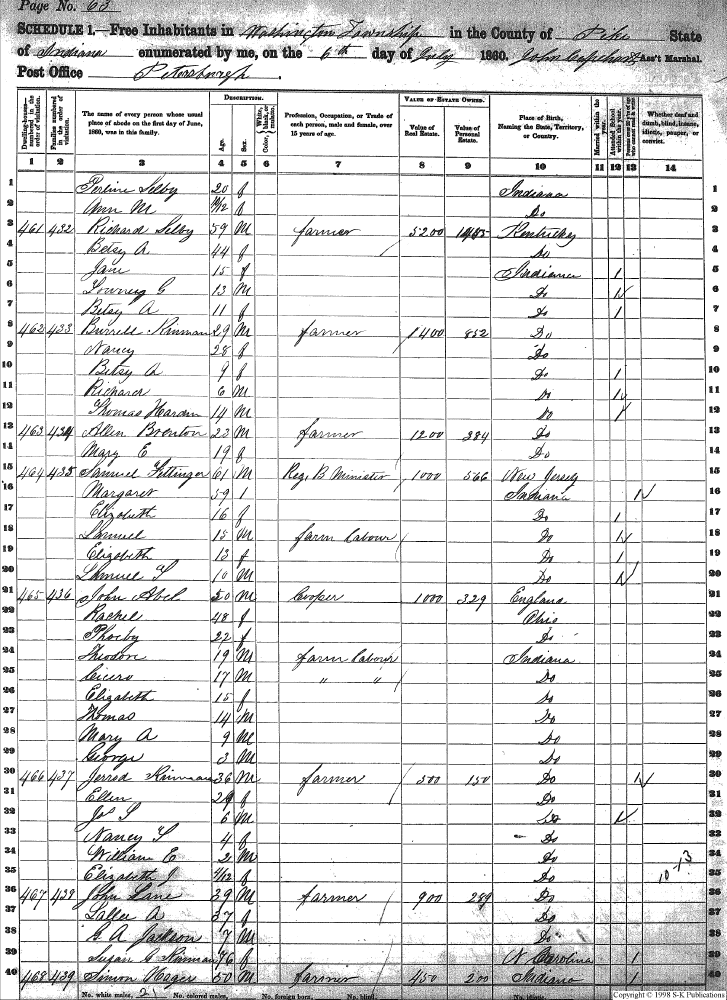 Page No. 63
SCHEDULE 1.—Free Inhabitants in Washington Township in the County of Pike State
of Indiana enumerated by me, on the 6th day of July 1860. John Capehart Ass't Marshal.
Post Office Petersburgh.
DESCRIPTION. VALUE OF ESTATE OWNED.
Dwelling-houses—numbered in the order of visitation. Families numbered in the order of visitation. The name of every person whose usual place of abode on the first day of June, 1860, was in this family. Age. Sex. Color, White, black, or mulatto. Profession, Occupation, or Trade of each person, male and female, over 15 years of age. Value of Real Estate. Value of Personal Estate. Place of Birth, Naming the State, Territory, or Country. Married within the year. Attended School within the year. Whether deaf and dumb, blind, insane, idiotic, pauper, or convict.
1 2 3 4 5 6 7 8 9 10 11 12 13 14
1 Selby 20 f Indiana 1
2 Ann M f Do 2
3 461 432 Richard Selby 59 M farmer 5200 Kentucky 3
4 Betsy A 44 f Do 4
5 Jane 15 f Indiana 1 5
6 G 13 M Do 1 6
7 Betsy A 11 f Do 1 7
8 462 433 Burrell Kinman 29 M farmer 1400 852 Do 8
9 Nancy 28 f Do 9
10 Betsy A 9 f Do 1 10
11 Richard 6 M Do 1 11
12 Thomas Hardin 14 M Do 1 12
13 463 434 Allen Brenton 23 M farmer 1200 384 Do 13
14 Mary E 19 f Do 14
15 464 435 Samuel 61 M Reg. B Minister 1000 566 New Jersey 15
16 Margaret 59 1 Indiana 1 16
17 Elizabeth 16 f Do 1 17
18 Samuel 15 M farm labour Do 1 18
19 Elizabeth 13 f Do 1 19
20 Samuel 10 M Do 1 20
21 465 436 John Abel 50 M Cooper 1000 329 England 21
22 Rachel 48 f Ohio 22
23 Phoeby 22 f Do 23
24 Theodore 19 M farm labour Indiana 24
25 Cicero 17 M " " Do 25
26 Elizabeth 15 f Do 26
27 Thomas 14 M Do 27
28 Mary A 9 M Do 28
29 George 3 M Do 29
30 466 437 Jerred Kinman 36 M farmer 300 150 Do 1 30
31 Ellen 29 f Do 31
32 Jos S 6 M Do 1 32
33 Nancy 4 f Do 33
34 William E 2 M Do 34
35 Elizabeth J f Do 10-13 35
36 467 439 John Lane 39 M farmer 900 289 Do 36
37 A 37 f Do 37
38 G. A Jackson 7 M Do 38
39 Susan C Kinman 76 f N Carolina 1 39
40 468 439 Simon 50 M farmer 450 200 Indiana 1 40
No. white males, 21 No. colored males, No. foreign born, No. blind,
Copyright © 1998 S-K Publications